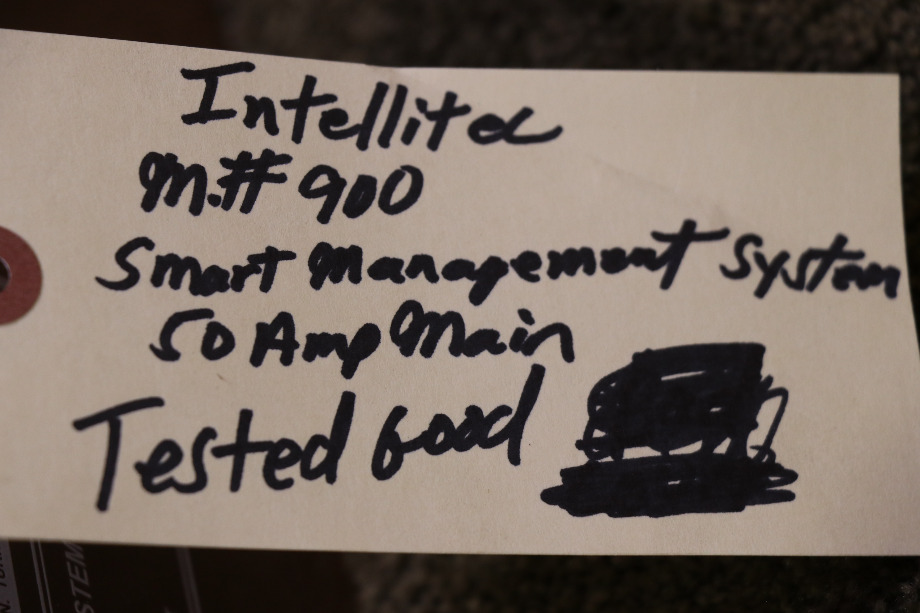 Intellitec
M.# 900
Smart Management System
50 Amp Main
Tested Good
STEM